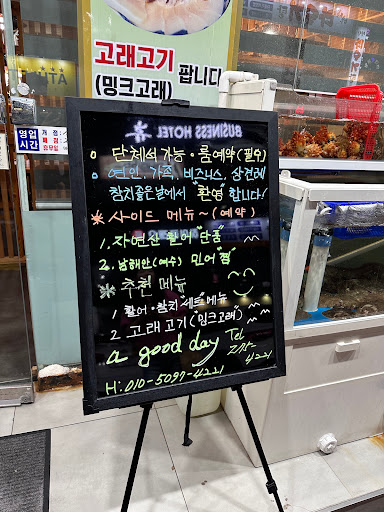 고래고기
(밍크고래) 팝니다
영업
시간
BUSINESS HOTEL
o 단체석 가능 · 룸예약 (필수)
o 연인, 가족, 비즈니스, 상견례
참치좋은날에서 "환영"합니다!
※ 사이드 메뉴 ~ (예약)
1. 자연산 활어 "단품"
2. 남해안 (여수) 민어 "찜"
※ 추천 메뉴
1. 활어 · 참치 세트 메뉴
2. 고래고기 ("밍크고래")
a good day Tel
H: 010-5097-4221